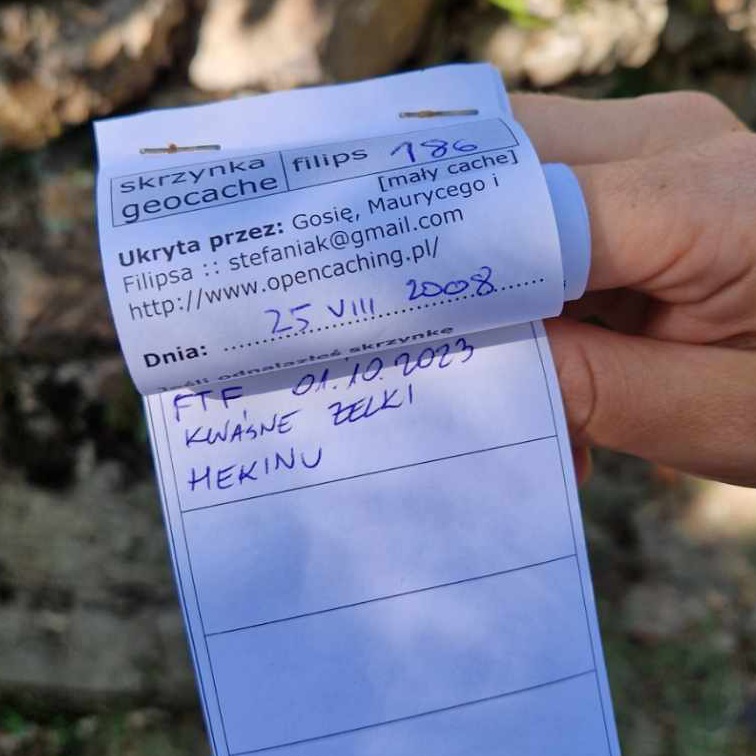 skrzynka
geocache
filips 186
[mały cache]
Ukryta przez: Gosię, Maurycego i
Filipsa :: stefaniak@gmail.com
http://www.opencaching.pl/
Dnia: 25 VIII 2008
Jeśli odnalazłeś skrzynkę
FTF 01.10.2023
KWAŚNE ŻELKI
HEKINU